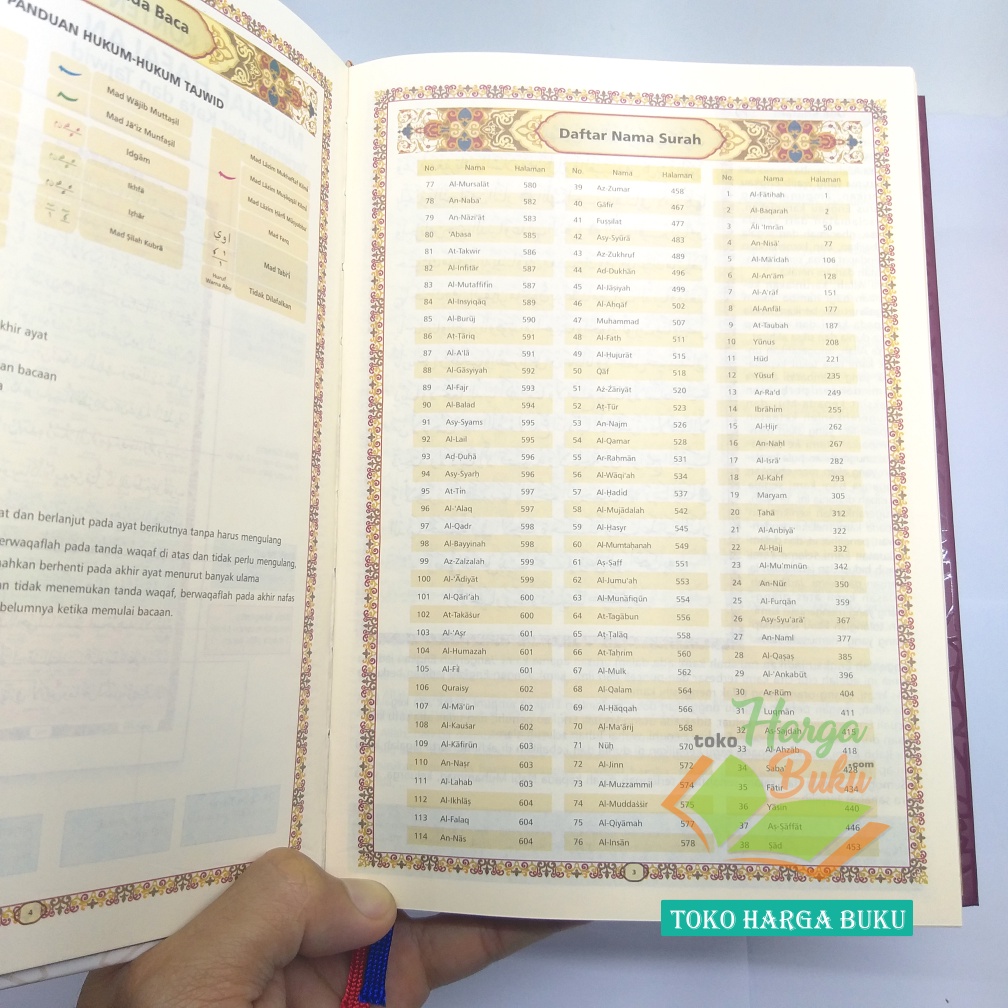 da Baca
PANDUAN HUKUM-HUKUM TAJWID
Mad Wājib Muttaṣil
Mad Jā'iz Munfaṣil
Idgām
Ikhfā
Iẓhār
Mad Ṣilah Kubrā
Mad Farq
Mad Ṭabī'ī
Tidak Dilafalkan
khir ayat
an bacaan
a
at dan berlanjut pada ayat berikutnya tanpa harus mengulang
erwaqaflah pada tanda waqaf di atas dan tidak perlu mengulang,
nahkan berhenti pada akhir ayat menurut banyak ulama
n tidak menemukan tanda waqaf, berwaqaflah pada akhir nafas
belumnya ketika memulai bacaan.
4
Daftar Nama Surah
No. Nama Halaman No. Nama Halaman No. Nama Halaman
77 Al-Mursalāt 580 39 Az-Zumar 458 1. Al-Fātiḥah 1
78 An-Naba' 582 40 Gāfir 467 2 Al-Baqarah 2
79 An-Nāzi'āt 583 41 Fuṣṣilat 477 3 Āli 'Imrān 50
80 'Abasa 585 42 Asy-Syūrā 483 4 An-Nisā' 77
81 At-Takwir 586 43 Az-Zukhruf 489 5 Al-Mā'idah 106
82 Al-Infiṭār 587 44 Ad-Dukhān 496 6 Al-An'ām 128
83 Al-Muṭaffifīn 587 45 Al-Jāṡiyah 499 7 Al-A'rāf 151
84 Al-Insyiqāq 589 46 Al-Aḥqāf 502 8 Al-Anfāl 177
85 Al-Burūj 590 47 Muhammad 507 9 At-Taubah 187
86 Aṭ-Ṭāriq 591 48 Al-Fatḥ 511 10 Yūnus 208
87 Al-A'lā 591 49 Al-Ḥujurāt 515 11 Hūd 221
88 Al-Gāsyiyah 592 50 Qāf 518 12 Yūsuf 235
89 Al-Fajr 593 51 Aż-Żāriyāt 520 13 Ar-Ra'd 249
90 Al-Balad 594 52 Aṭ-Ṭūr 523 14 Ibrāhim 255
91 Asy-Syams 595 53 An-Najm 526 15 Al-Ḥijr 262
92 Al-Lail 595 54 Al-Qamar 528 16 An-Naḥl 267
93 Aḍ-Ḍuḥā 596 55 Ar-Raḥmān 531 17 Al-Isrā' 282
94 Asy-Syarḥ 596 56 Al-Wāqi'ah 534 18 Al-Kahf 293
95 At-Tīn 597 57 Al-Ḥadid 537 19 Maryam 305
96 Al-'Alaq 597 58 Al-Mujādalah 542 20 Ṭāhā 312
97 Al-Qadr 598 59 Al-Ḥasyr 545 21 Al-Anbiyā' 322
98 Al-Bayyinah 598 60 Al-Mumtaḥanah 549 22 Al-Ḥajj 332
99 Az-Zalzalah 599 61 Aṣ-Ṣaff 551 23 Al-Mu'minūn 342
100 Al-'Ādiyāt 599 62 Al-Jumu'ah 553 24 An-Nūr 350
101 Al-Qāri'ah 600 63 Al-Munāfiqūn 554 25 Al-Furqān 359
102 At-Takāṡur 600 64 At-Tagābun 556 26 Asy-Syu'arā' 367
103 Al-'Aṣr 601 65 Aṭ-Ṭalāq 558 27 An-Naml 377
104 Al-Humazah 601 66 At-Taḥrīm 560 28 Al-Qaṣaṣ 385
105 Al-Fīl 601 67 Al-Mulk 562 29 Al-'Ankabūt 396
106 Quraisy 602 68 Al-Qalam 564 30 Ar-Rūm 404
107 Al-Mā'ūn 602 69 Al-Ḥāqqah 566 31 Luqmān 411
108 Al-Kauṡar 602 70 Al-Ma'ārij 568 32 As-Sajdah 415
109 Al-Kāfirūn 603 71 Nūḥ 570 33 Al-Aḥzāb 418
110 An-Naṣr 603 72 Al-Jinn 572 34 Saba'
111 Al-Lahab 603 73 Al-Muzzammil 574 35 Fāṭir 434
112 Al-Ikhlāṣ 604 74 Al-Muddaṡṡir 575 36 Yāsīn 440
113 Al-Falaq 604 75 Al-Qiyāmah 577 37 Aṣ-Ṣāffāt 446
114 An-Nās 604 76 Al-Insān 578 38 Ṣād 453
3
toko Harga
Buku .com
TOKO HARGA BUKU